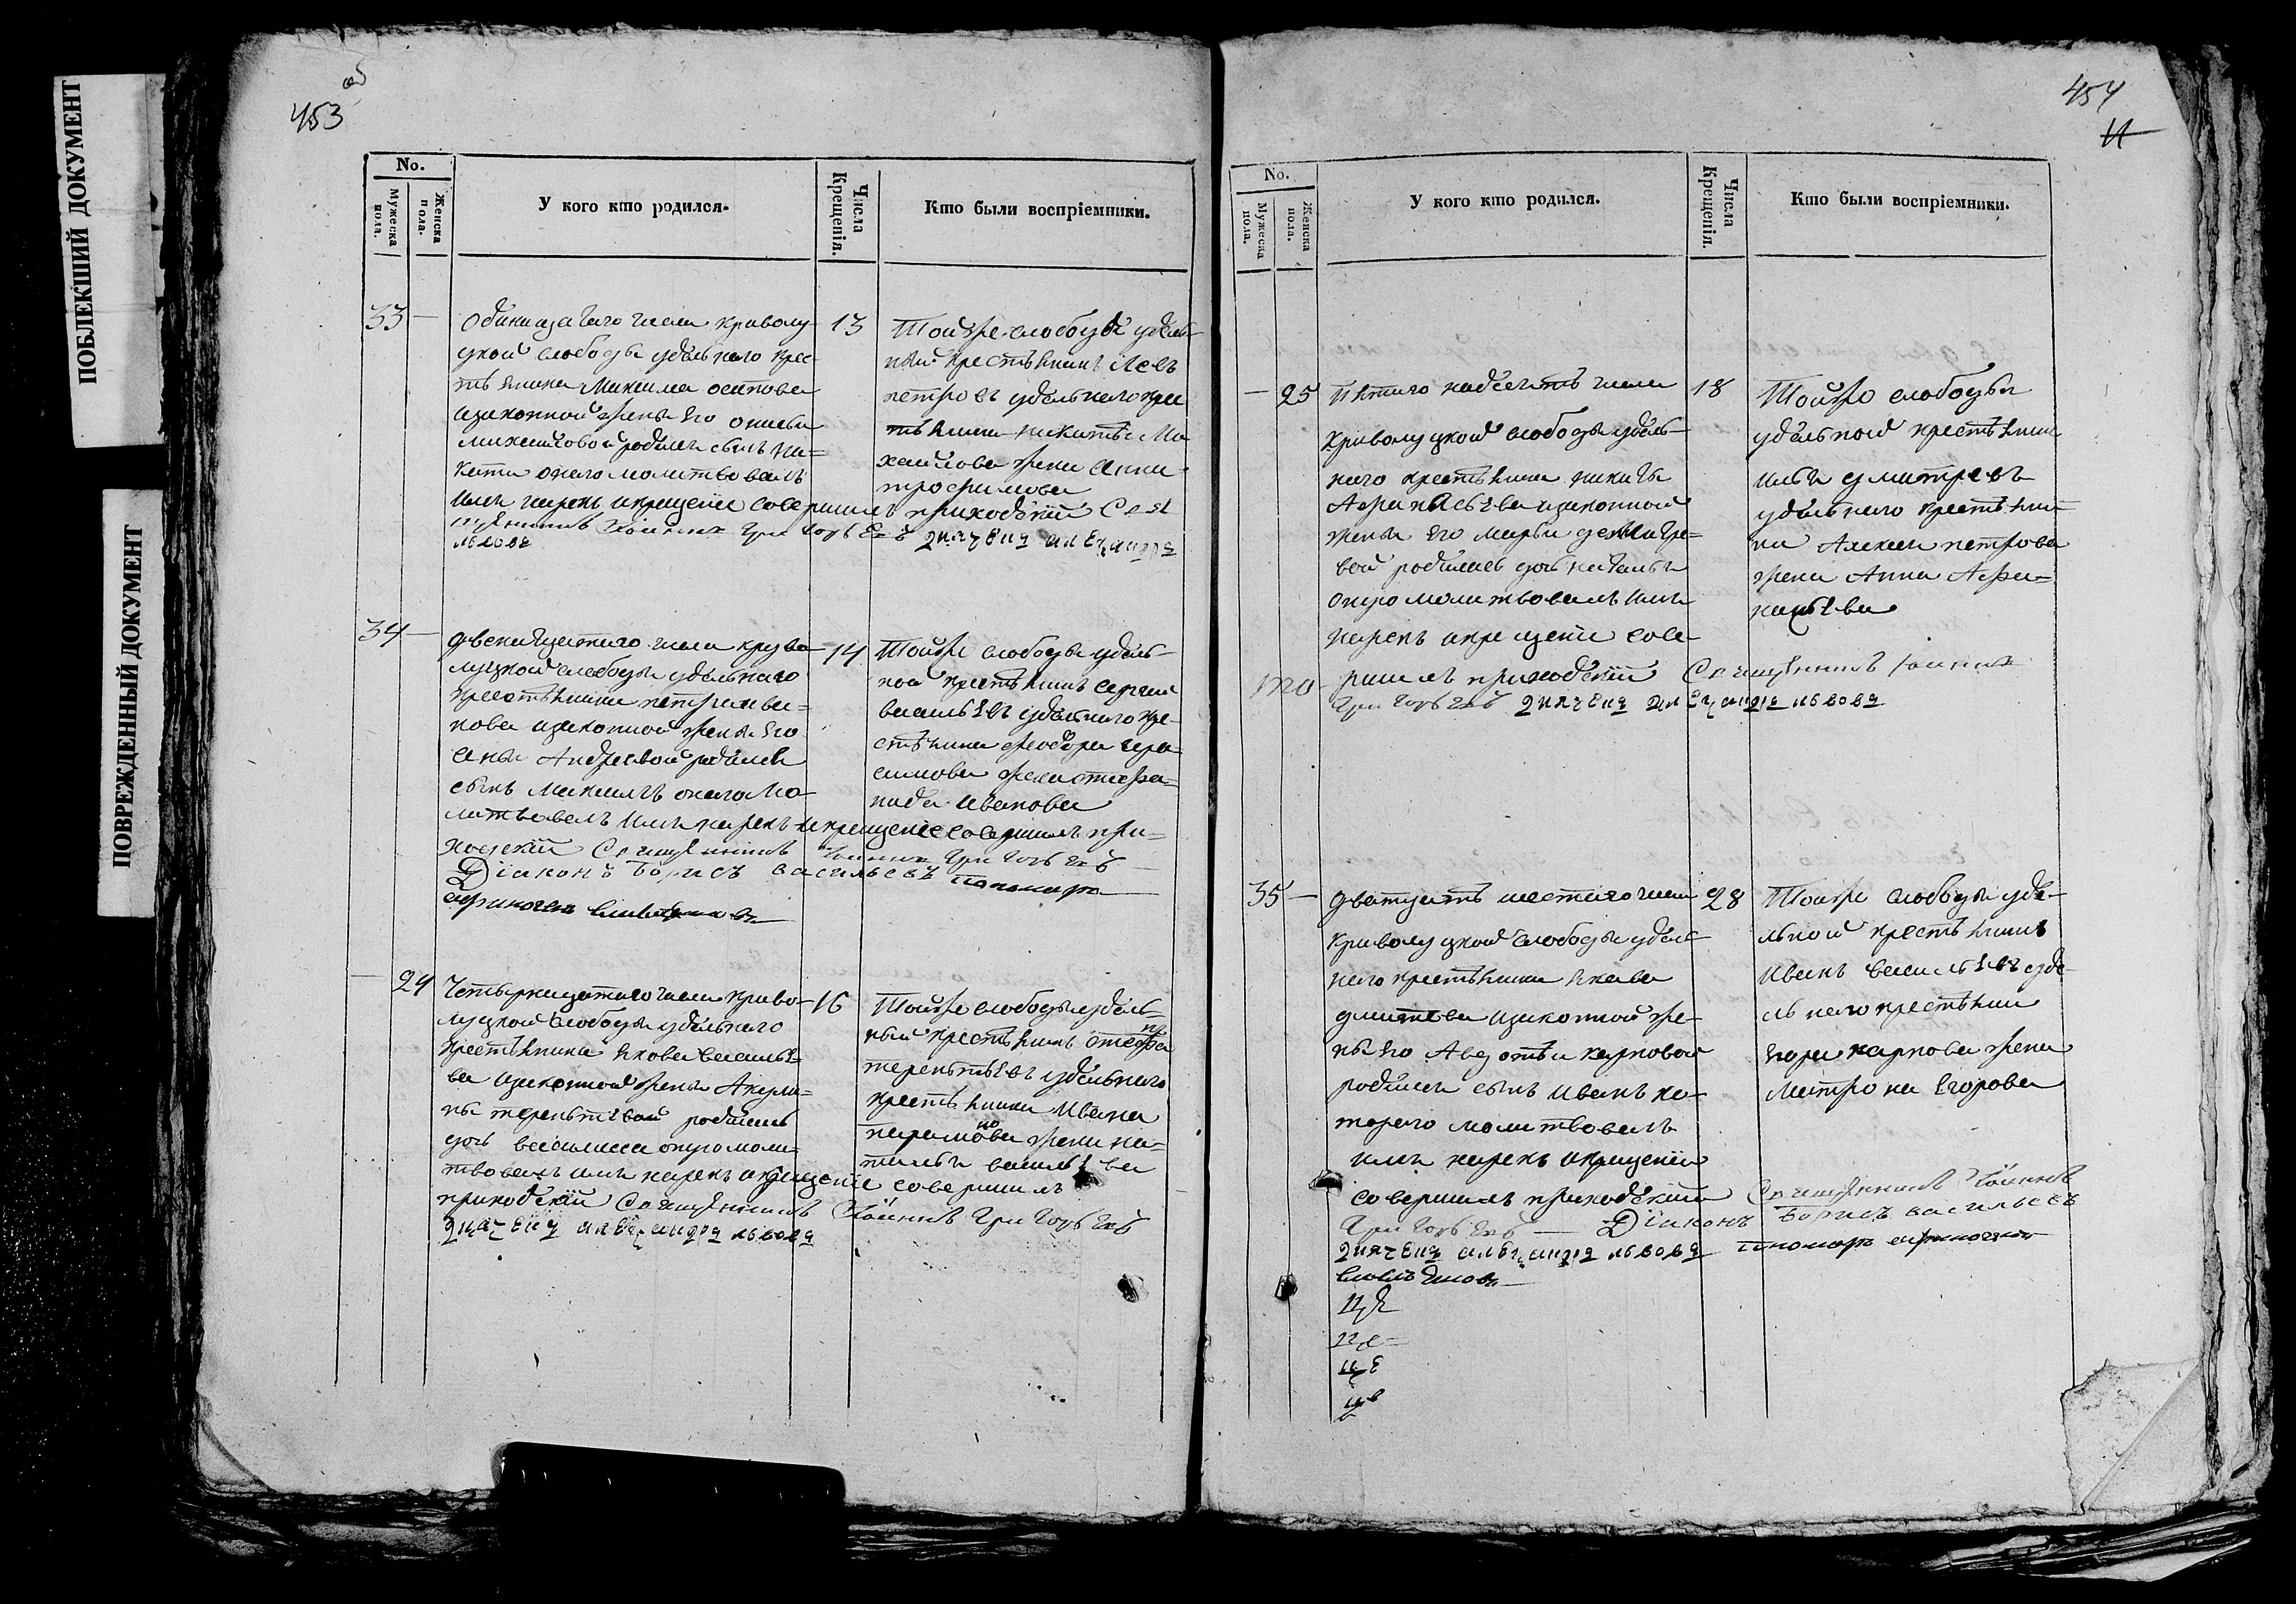 ПОБЛЕКШИЙ ДОКУМЕНТ
ПОВРЕЖДЕННЫЙ ДОКУМЕНТ
об
453
No.
Мужеска пола.
Женска пола.
У кого кто родился.
Числа Крещенія.
Кто были воспріемники.
33 —
Одинацатаго числа криволу-
цкой слободы удѣльнаго крес-
тьянина Максима осипова
законной жены Его
родился сынъ Ни-
кита онаго молитвовалъ
имя нарекъ и крещеніе совершилъ приходскій Свя
щенникъ Іоаннъ Григорьевъ дьячекъ александра
львовъ
13
Тойже слободы удѣль-
ный крестьянинъ Левъ
петровъ удѣльнаго крес
тьянина никиты Ми
хайлова жена Анна
трофимова
34 —
двенадцатаго числа криво-
луцкой слободы удѣльнаго
крестьянина петра ива-
нова законной жены Его
Андреевой родился
сынъ Михаилъ онаго Мо-
литвовалъ имя нарекъ и крещеніе совершилъ при-
ходскій Священникъ Іоаннъ Григорьевъ
Діаконъ Борисъ васильевъ пономарь
14
Тойже слободы удѣль-
ной крестьянинъ Сергей
васильевъ удѣльнаго кре-
стьянина феодора гера-
симова жена стефа-
нида Иванова
— 24
Четырнацатаго числа криво-
луцкой слободы удѣльнаго
крестьянина Якова василье-
ва законной жены Акули-
ны терентьевой родилась
дочь василиса оную моли-
твовалъ имя нарекъ и крещеніе совершилъ
приходскій Священникъ Іоаннъ Григорьевъ
дьячекъ александра львовъ
16
Тойже слободы удѣль-
ный крестьянинъ стефа
нъ
терентьевъ удѣльнаго
крестьянина Ивана
парамонова жена на-
талья васильева
454
11
No.
Мужеска пола.
Женска пола.
У кого кто родился.
Числа Крещенія.
Кто были воспріемники.
— 25
Пятаго надесять числа
криволуцкой слободы удѣль-
наго крестьянина никиты
Афанасьева законной
жены Его марьи дмитре-
вой родилась дочь наталья
оную молитвовалъ имя
нарекъ и крещеніе сове-
ршилъ приходскій Священникъ Іоаннъ
Григорьевъ дьячекъ александра львовъ
18
Тойже слободы
удѣльной крестьянин
илья дмитревъ
удѣльнаго крестьяни-
на Алексея петрова
жена Анна Афа-
насьева
35 —
дватцать шестаго числа
криволуцкой слободы удѣль-
наго крестьянина Якова
дмитева законной же-
ны Его Авдотьи карповой
родился сынъ Иванъ ко-
тораго молитвовалъ
имя нарекъ и крещеніе
совершилъ приходскій Священникъ Іоаннъ
Григорьевъ — Діаконъ Борисъ васильевъ
дьячекъ александра львовъ пономарь
28
Тойже слободы удѣ-
льной крестьянинъ
Иванъ васильевъ удѣ-
льнаго крестьянина
Егора карпова жена
Матрона Егорова